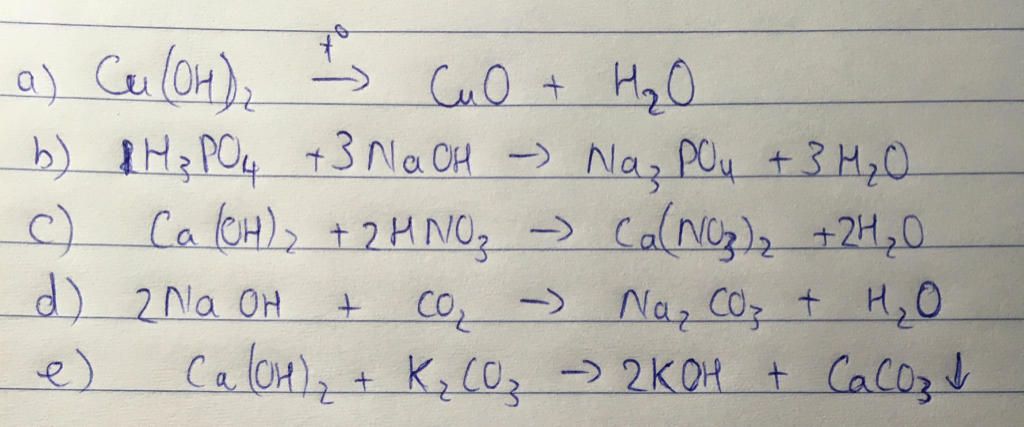 a) Cu(OH)₂ —t°→ CuO + H₂O
b) 1H₃PO₄ + 3NaOH → Na₃PO₄ + 3H₂O
c) Ca(OH)₂ + 2HNO₃ → Ca(NO₃)₂ + 2H₂O
d) 2NaOH + CO₂ → Na₂CO₃ + H₂O
e) Ca(OH)₂ + K₂CO₃ → 2KOH + CaCO₃↓